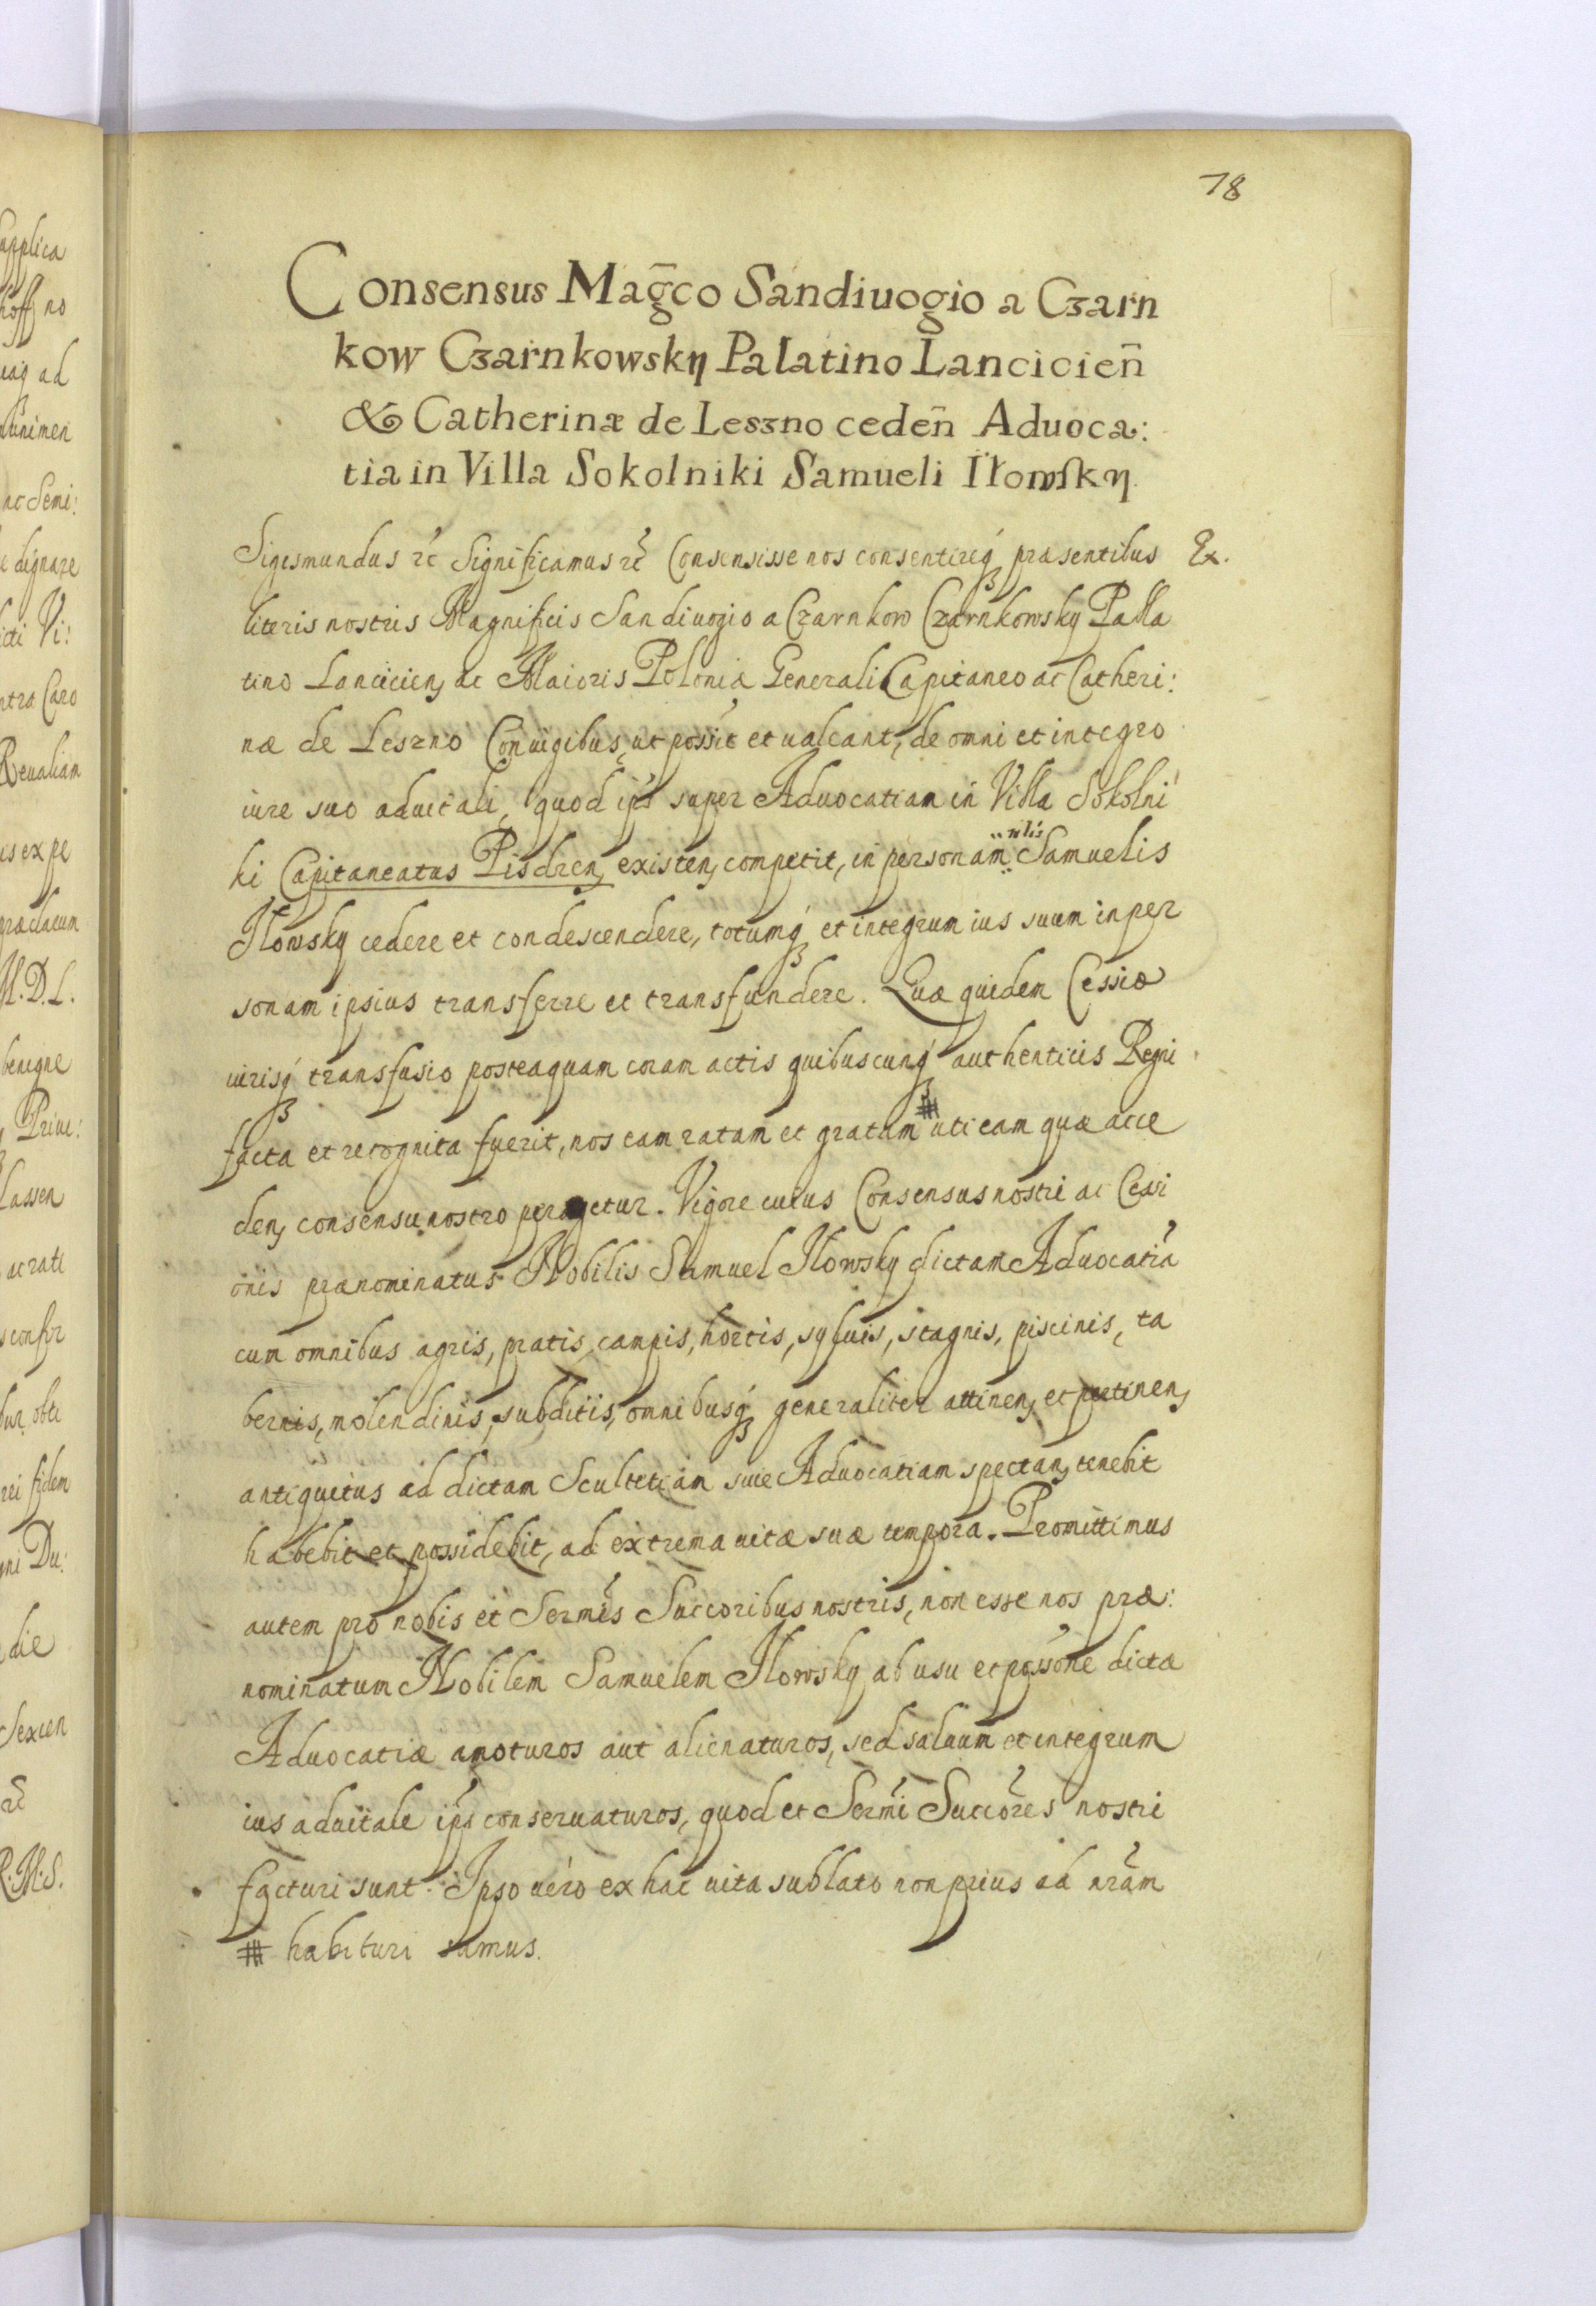 78
Consensus Mag̃co Sandiuogio a Czarn
kow Czarnkowsky Palatino Lancicien̄
& Catherinæ de Leszno ceden̄ Aduoca:
tia in Villa Sokolniki Samueli Iłowsky.
Sigismundus &c̃ Significamus &c̃ Consensisse nos consentireq́ꝫ præsentibus Ex.
literis nostris Magnificis Sandiuogio a Czarnkow Czarnkowsky Palla
tino Lancicien, ac Maioris Poloniæ Generali Capitaneo ac Catheri:
næ de Leszno Coniugibus, ut possit et ualeant, de omni et integro
iure suo aduitali, quod ip̃s super Aduocatiam in Villa Sokolni
ki Capitaneatus Pisdren, existen, competit, in personam nl̃is Samuelis
Iłowsky cedere et condescendere, totumq́ꝫ et integrum ius suum in per
sonam ipsius transferre et transfundere. Quæ quidem Cessio
iurisq́ꝫ transfusio posteaquam coram actis quibuscunq́ꝫ authenticis Regni
facta et recognita fuerit, nos eam ratam et gratam # uti eam quæ acce
den, consensu nostro peragetur. Vigore cuius Consensus nostri ac Cessi
onis prænominatus Nobilis Samuel Iłowsky dictam Aduocatiã
cum omnibus agris, pratis, campis, hortis, syluis, stagnis, piscinis, ta
bernis, molendinis, subditis, omnibusq́ꝫ generaliter attinen, et pertinen,
antiquitus ad dictam Scultetiam siue Aduocatiam spectan, tenebit
habebit et possidebit, ad extrema uitæ suæ tempora. Promittimus
autem pro nobis et Serm̃is Succoribus nostris, non esse nos præ:
nominatum Nobilem Samuelem Iłowsky ab usu et possõne dictæ
Aduocatiæ amoturos aut alienaturos, sed saluum et integrum
ius aduitale ip̃s conseruaturos, quod et Serm̃i Succõres nostri
facturi sunt. Ipso uero ex hac uita sublato non prius ad nrãm
# habituri sumus.